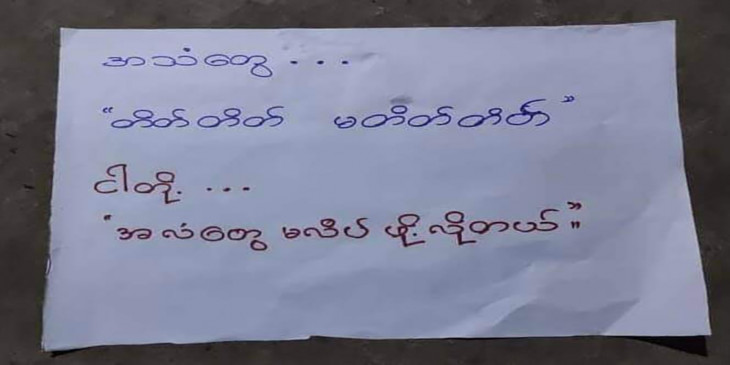 အသံတွေ ...
"တိတ်တိတ် မတိတ်တိတ်"
ငါတို့ ...
"အလံတွေ မလိပ် ဖို့လိုတယ်"။